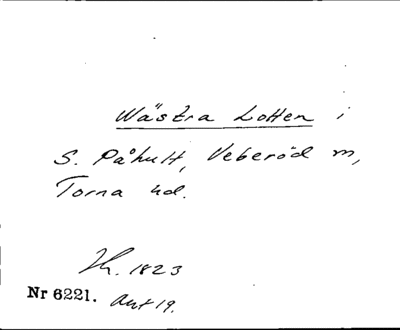 Wästra Lotten i
S. Påhult, Veberöd m,
Torna hd.
1823
Nr 6221. Akt 19.